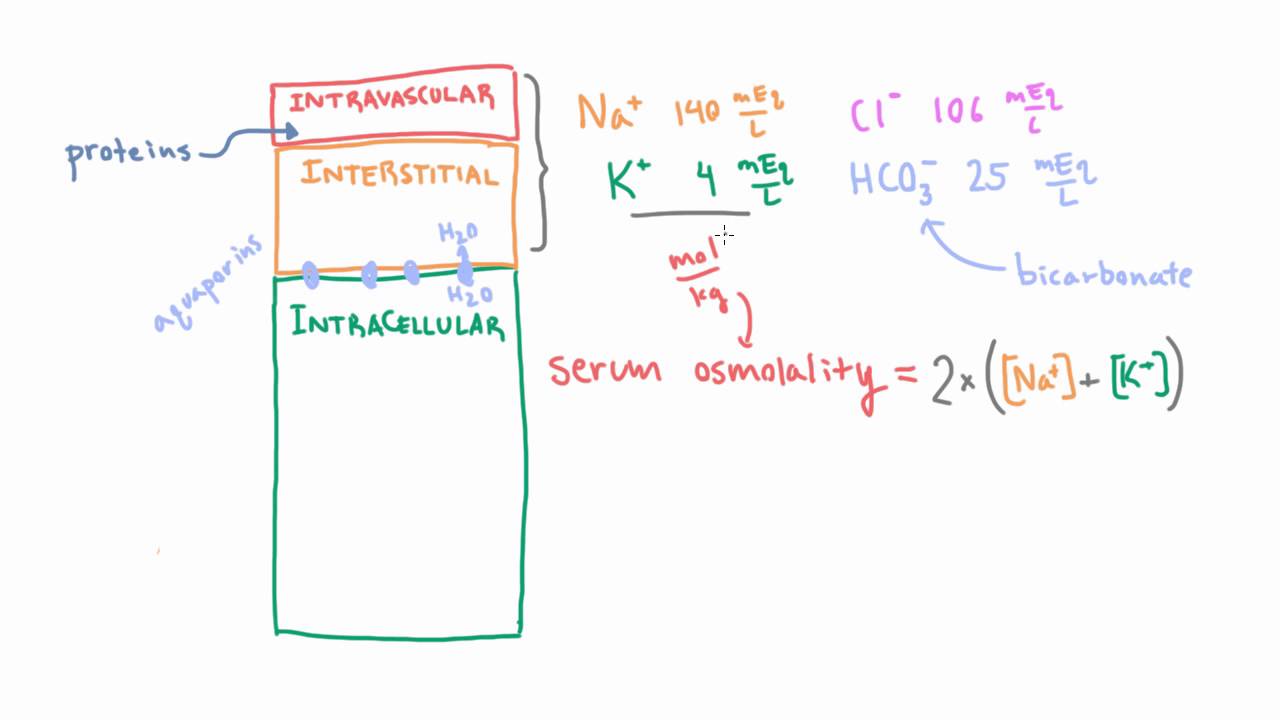 INTRAVASCULAR
proteins
INTERSTITIAL
aquaporins
H₂O
H₂O
INTRACELLULAR
Na⁺ 140 mEq/L
K⁺ 4 mEq/L
Cl⁻ 106 mEq/L
HCO₃⁻ 25 mEq/L
bicarbonate
mol/kg
serum osmolality = 2 × ([Na⁺] + [K⁺])